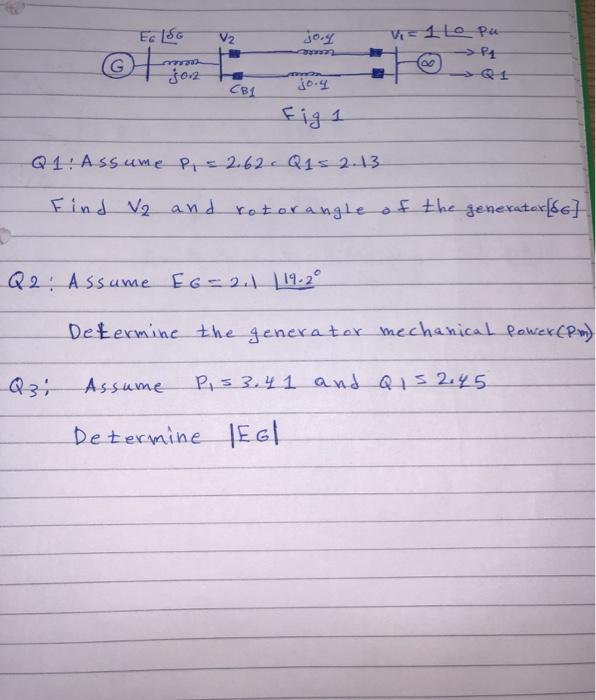 EG ∠δG V2 j0.4 V1 = 1∠0 Pu
G j0.2 ∞ → P1
CB1 j0.4 → Q1
Fig 1
Q1: Assume P1 = 2.62, Q1 = 2.13
Find V2 and rotor angle of the generator [δG]
Q2: Assume EG = 2.1 ∠19.2°
Determine the generator mechanical Power (Pm)
Q3: Assume P1 = 3.41 and Q1 = 2.45
Determine |EG|